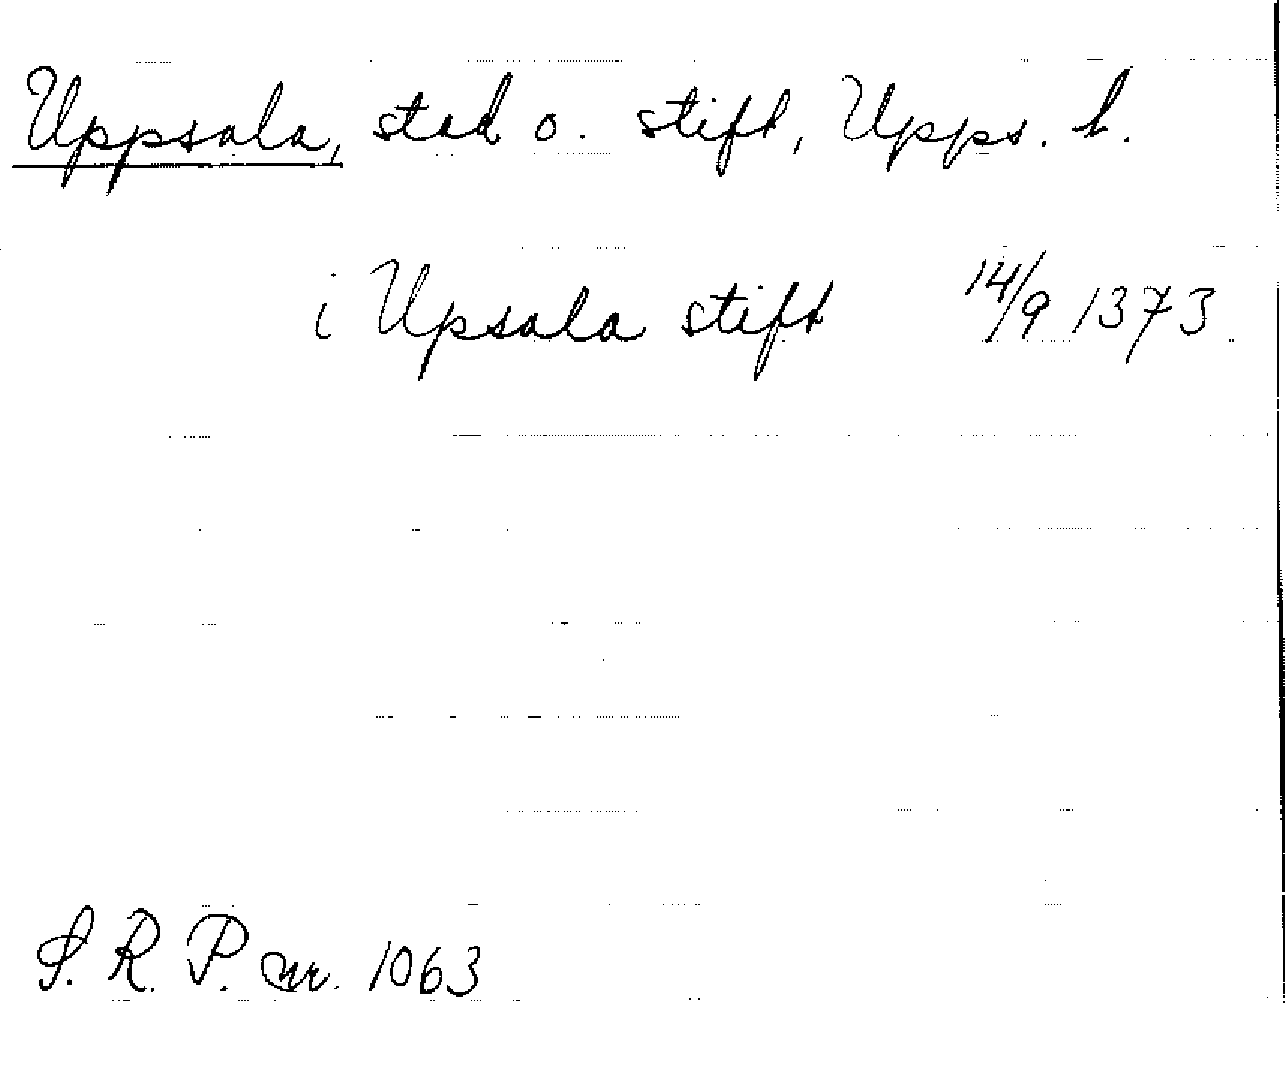 Uppsala, stad o. stift, Upps. l.
i Upsala stift 14/9 1373.
S. R. P. nr. 1063